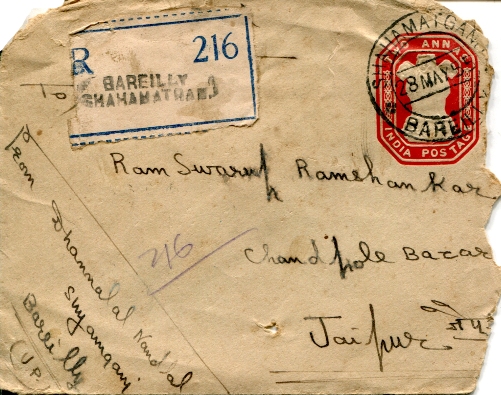 R 216
BAREILLY
SHAHAMATGANJ
TWO ANNAS
INDIA POSTAGE
SHAHAMATGAN
28 MAY
BAREILLY
To
Ram Swarup Ramshankar
Chandpole Bazar
Jaipur
216
From
Dhannalal Nandlal
Shyamganj
Bareilly
(U.P.)